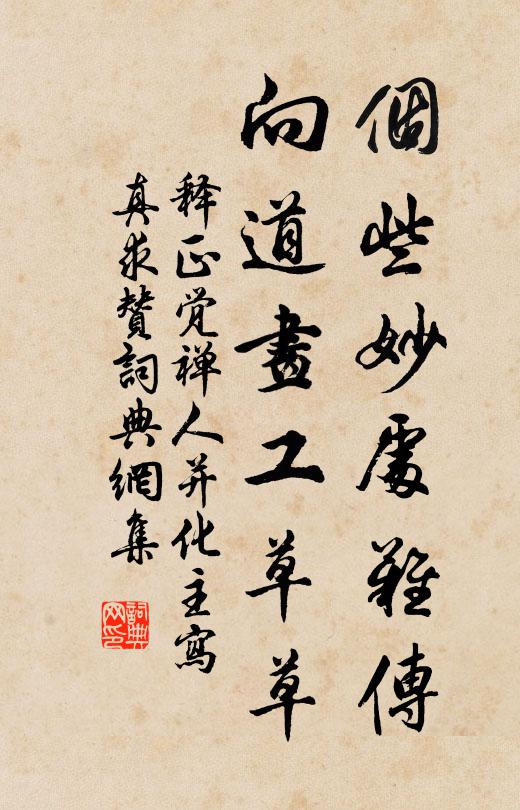 個些妙處難傳
向道畫工草草
释正觉禅人并化主寫
真求贊詞典網集
詞典網印